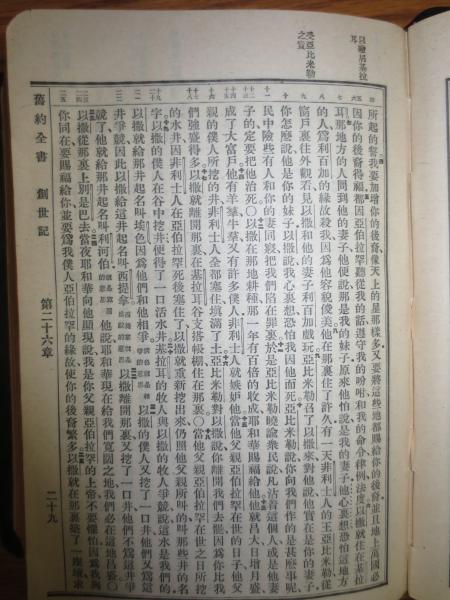 以撒居基拉
耳
受亞比米勒
之責
所起的誓我要加增你的後裔像天上的星那樣多又要將這些地都賜給你的後裔並且地上萬國必
因你的後裔得福都因亞伯拉罕聽從我的話遵守我的吩咐和我的命令律例法度以撒就住在基拉
耳那地方的人問到他的妻子他便說那是我的妹子原來他怕說是我的妻子他心裏想恐怕這地方
的人爲利百加的緣故殺我因爲他容貌俊美他在那裏住了許久有一天非利士人的王亞比米勒從
窗戶裏往外觀看見以撒和他的妻子利百加戲玩亞比米勒召了以撒來對他說他實在是你的妻子
你怎麽說他是你的妹子以撒說我心裏想恐怕我因他而死亞比米勒說你向我們作的是甚麽事呢
民中險些有人和你的妻同寢把我們陷在罪裏於是亞比米勒曉諭衆民說凡沾着這個人或是他妻
子的定要把他治死〇以撒在那地耕種那一年有百倍的收成耶和華賜福給他他就昌大日增月盛
成了大富戶他有羊羣牛羣又有許多僕人非利士人就嫉妒他當他父親亞伯拉罕在世的日子他父
親的僕人所挖的井非利士人全都塞住填滿了土亞比米勒對以撒說你離開我們去罷因爲你比我
們強盛得多以撒就離開那裏在基拉耳谷支搭帳棚住在那裏〇當他父親亞伯拉罕在世之日所挖
的水井因非利士人在亞伯拉罕死後塞住了以撒就重新挖出來仍照他父親所叫的叫那些井的名
字以撒的僕人在谷中挖井便得了一口活水井基拉耳的牧人與以撒的牧人爭競說這水是我們的
以撒就給那井起名叫埃色因爲他們和他相爭以撒的僕人又挖了一口井他們又爲這
井爭競因此以撒給這井起名叫西提拿以撒離開那裏又挖了一口井他們不爲這井爭
說了他就給那井起名叫利河伯他說耶和華現在給我們寬闊之地我們必在這地昌盛〇
以撒從那裏上別是巴去當夜耶和華向他顯現說我是你父親亞伯拉罕的上帝不要懼怕因爲我與
你同在要賜福給你並要爲我僕人亞伯拉罕的緣故使你的後裔繁多以撒就在那裏築了一座壇求
舊約全書 創世記 第二十六章 二十九